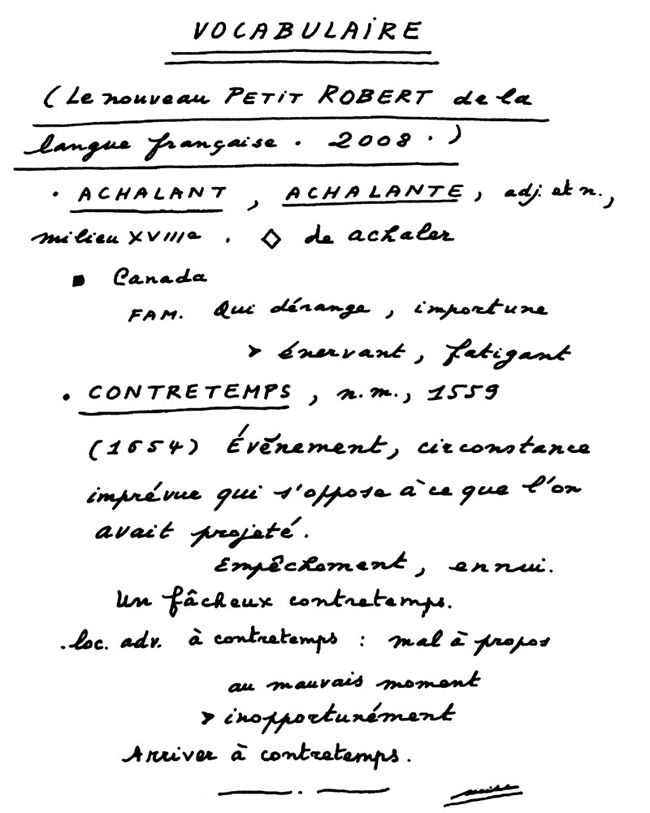 VOCABULAIRE
(Le nouveau PETIT ROBERT de la
langue française . 2008 . )
. ACHALANT , ACHALANTE , adj. et n.,
milieu XVIIIe . ◇ de achaler
■ Canada
FAM. Qui dérange , importune
➤ énervant , fatigant
. CONTRETEMPS , n.m., 1559
(1654) Événement, circonstance
imprévue qui s'oppose à ce que l'on
avait projeté.
Empêchement , ennui.
Un fâcheux contretemps.
. loc. adv. à contretemps : mal à propos
au mauvais moment
➤ inopportunément
Arriver à contretemps.